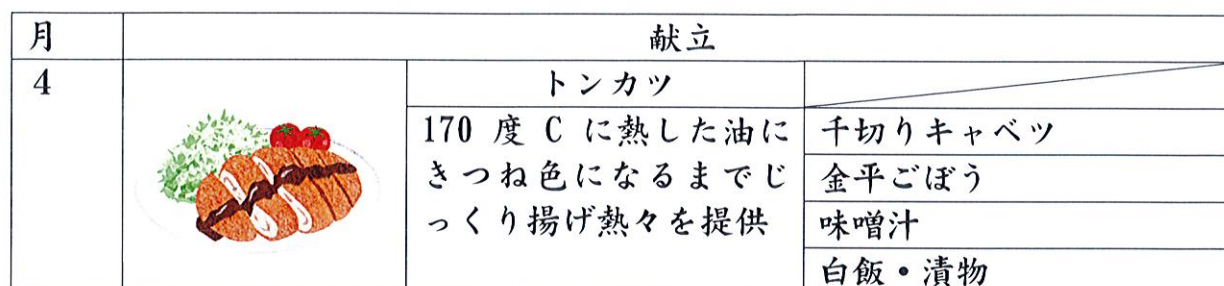 月
献立
4
トンカツ
170 度 C に熱した油に
きつね色になるまでじ
っくり揚げ熱々を提供
千切りキャベツ
金平ごぼう
味噌汁
白飯・漬物